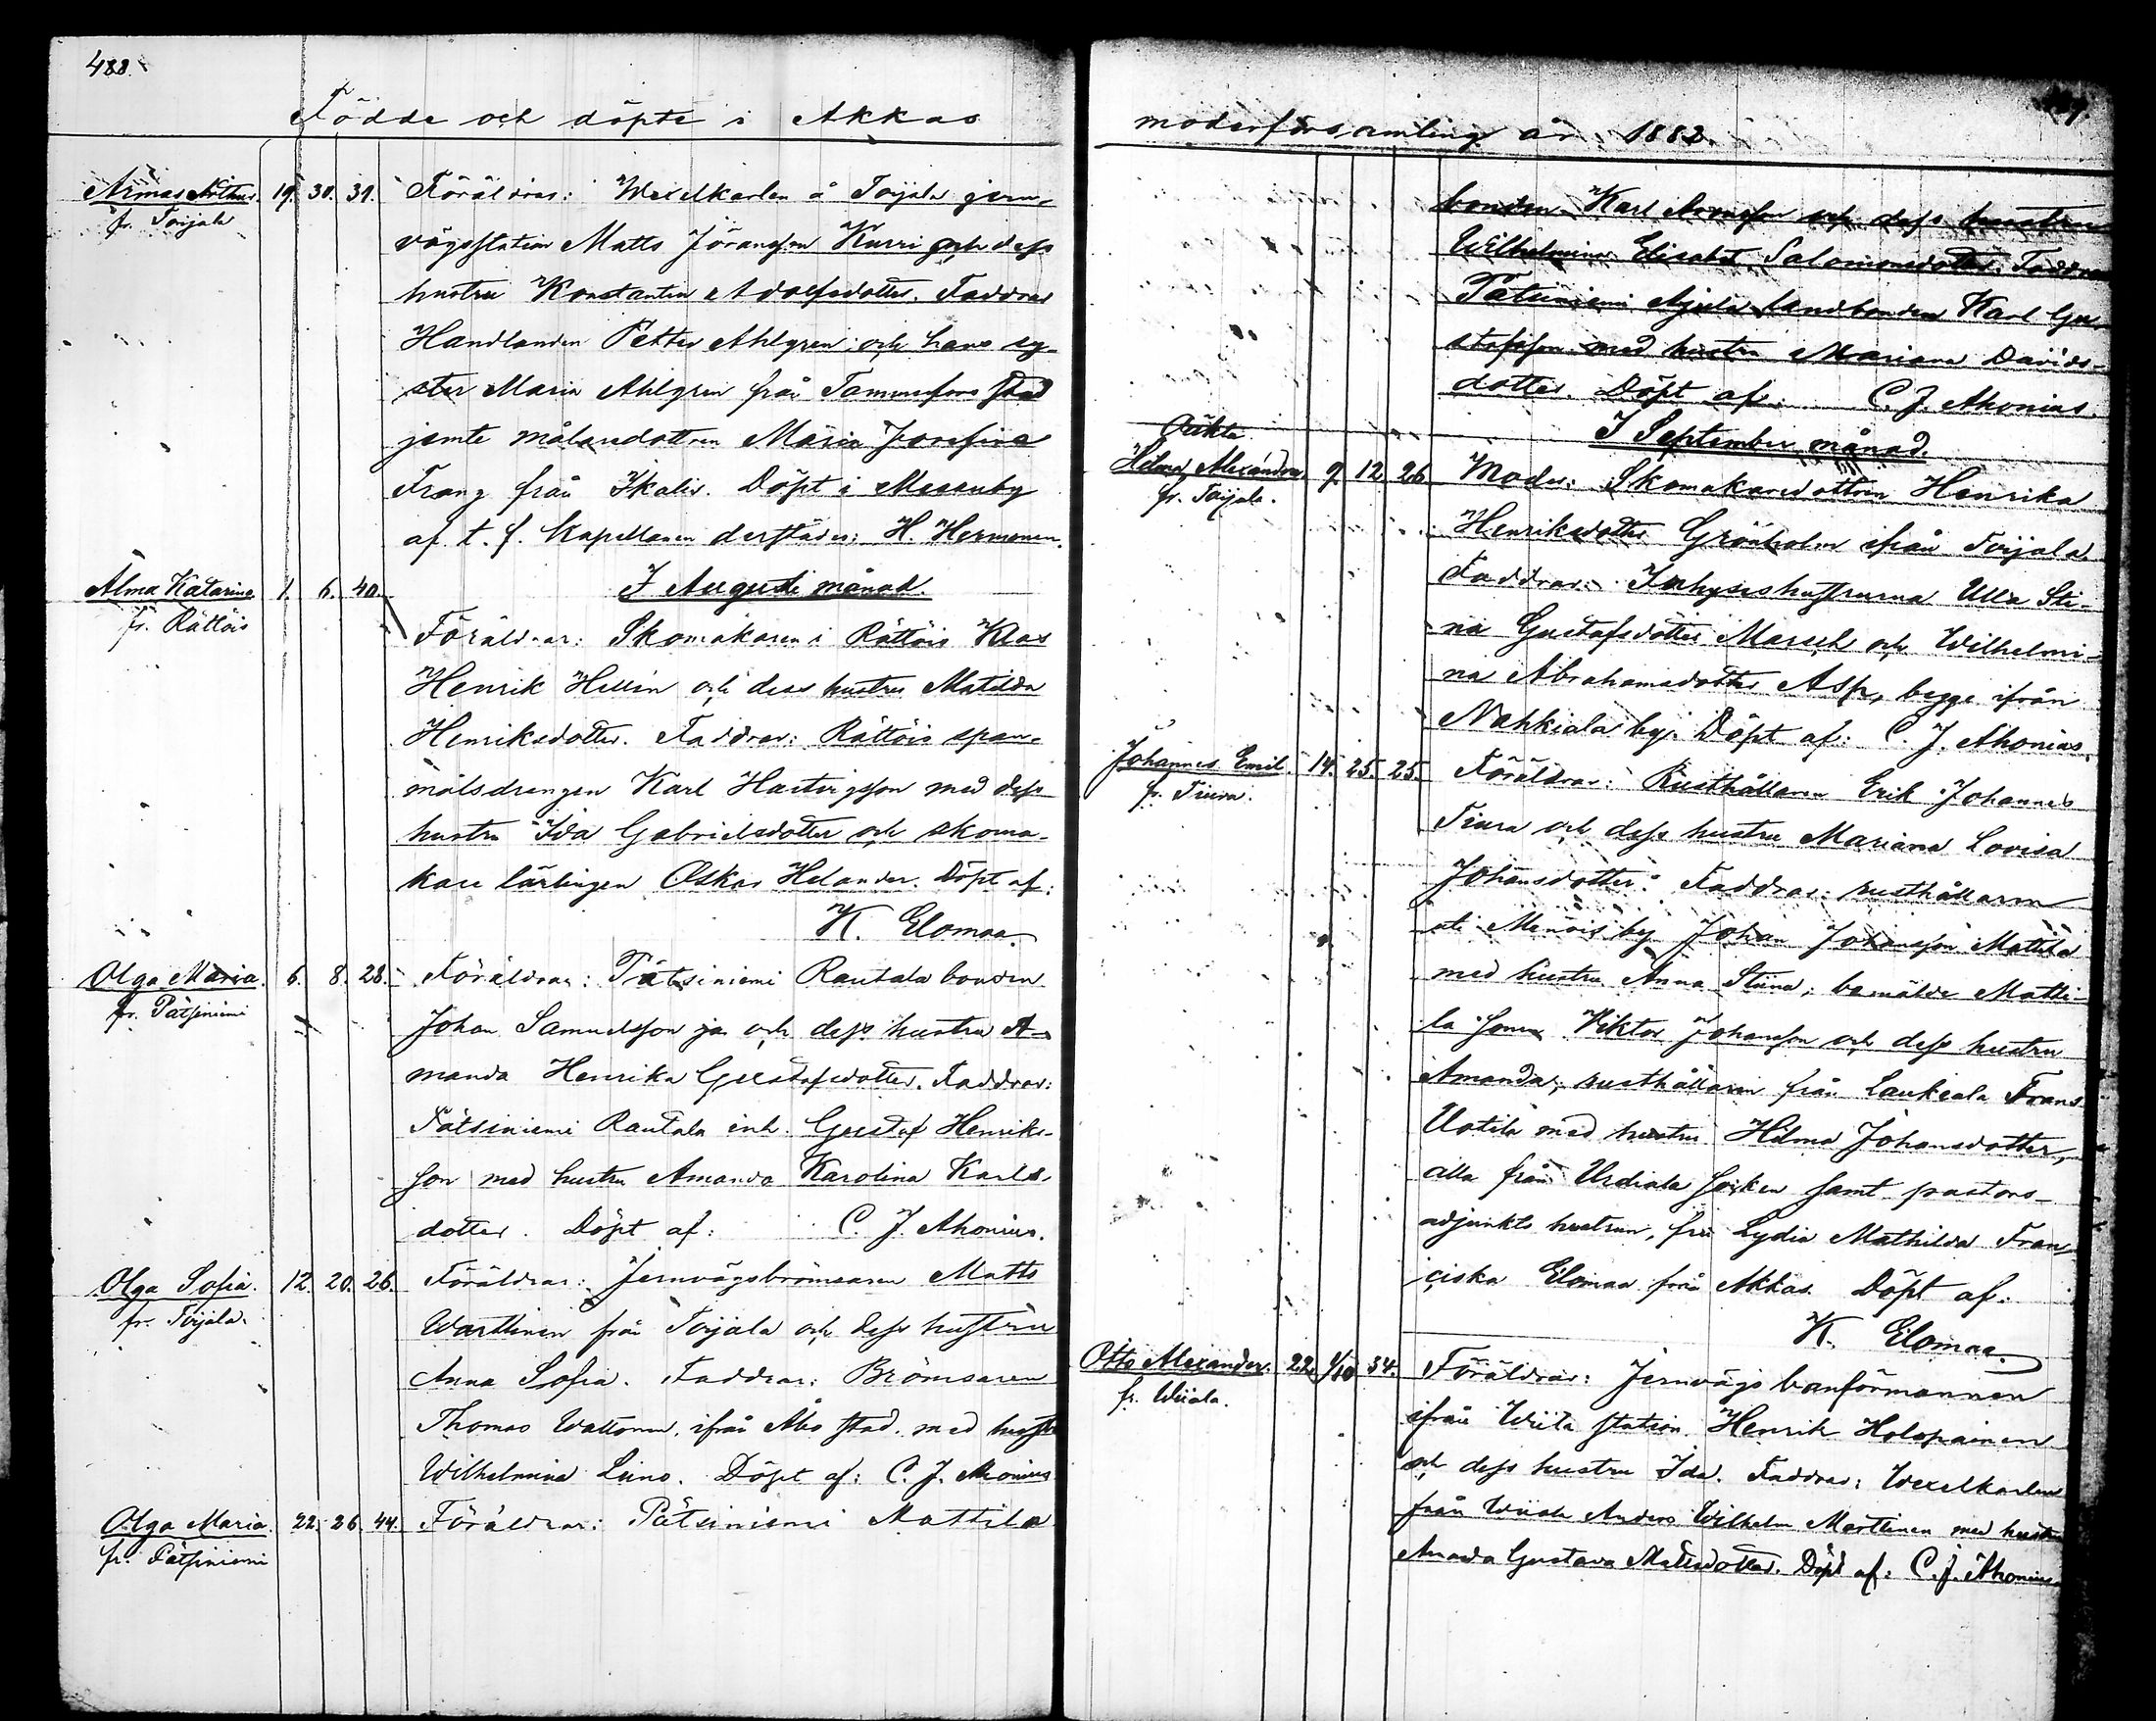 488.
Födde och döpte i Akkas
Armas Arthur 19. 30. 31. Föräldrar: Wexelkarlen å Toijala jern-
fr. Toijala
vägsstation Matts Jöransson Kurri och dess
hustru Konstantia Adolfsdotter. Faddrar
Handlanden Petter Ahlgren och hans sy-
ster Maria Ahlgren från Tammerfors stad
jemte målaredottren Maria Josefina
Frang från Ikalis. Döpt i Messuby
af t. f. Kapellanen derstädes: H. Hermonen.
I Augusti månad.
Alma Katarina 1. 6. 40.
fr. Rättöis
Föräldrar: Skomakaren i Rättöis Klas
Henrik Hellin och dess hustru Matilda
Henriksdotter. Faddrar: Rättöis span-
målsdrengen Karl Hartvigsson med dess
hustru Ida Gabrielsdotter och skoma-
kare lärlingen Oskar Helander. Döpt af:
K. Elomaa.
Olga Maria. 6. 8. 28. Föräldrar: Pätsiniemi Rautala bonden
fr. Pätsiniemi
Johan Samuelsson ja och dess hustru A-
manda Henrika Gustafsdotter. Faddrar:
Pätsiniemi Rautala inh. Gustaf Henriks-
son med hustru Amanda Karolina Karls-
dotter. Döpt af: C. J. Ahonius.
Olga Sofia. 12. 20. 26. Föräldrar: Jernvägsbromsaren Matts
fr. Toijala.
Warttinen från Toijala och dess hustru
Anna Sofia. Faddrar: Brömsaren
Thomas Wattonen ifrån Åbo stad med hustru
Wilhelmina Leino. Döpt af: C. J. Ahonius
Olga Maria. 22. 26. 44. Föräldrar: Pätsiniemi Mattila
fr. Pätsiniemi
moderförsamling år 1882.
bonden Karl och dess hustru
Wilhelmina Elisabet Salomonsdotter. Faddrar
Pätsiniemi landbonden Karl Gu-
stafsson med hustru Mariana Davids-
dotter. Döpt af: C. J. Ahonius.
I September månad.
Oäkta
Hilma Alexandra 9. 12. 26 Moder: Skomakaredottren Henrika
fr. Toijala.
Henriksdotter Grönholm ifrån Toijala.
Faddrar: Inhyseshustrurna Ulla Sti-
na Gustafsdotter Marsch och Wilhelmi-
na Abrahamsdotter Asp, begge ifrån
Nahkiala by. Döpt af: C. J. Ahonius.
Johannes Emil. 14. 25. 25. Föräldrar: Rusthållaren Erik Johannes
fr. Tiura.
Tiura och dess hustru Mariana Lovisa
Johansdotter. Faddrar: rusthållaren
uti Menöis by Johan Johansson Mattila
med hustru Anna Stiina; bemälde Matti-
la sonen Viktor Johansson och dess hustru
Amanda; rusthållaren från Laukeala Frans
Uotila med hustru Hilma Johansdotter,
alla från Urdiala socken samt pastors-
adjunkts hustrun, fru Lydia Mathilda Fran-
ciska Elomaa från Akkas. Döpt af:
K. Elomaa.
Otto Alexander. 22. 1/10 34. Föräldrar: Jernvägs banförmannen
fr. Wiiala.
ifrån Wiiala station Henrik Holopainen
och dess hustru Ida. Faddrar: Wexelkarlen
från Wiiala Anders Wilhelm Marttinen med hustru
Amanda Gustava Mattsdotter. Döpt af: C. J. Ahonius.